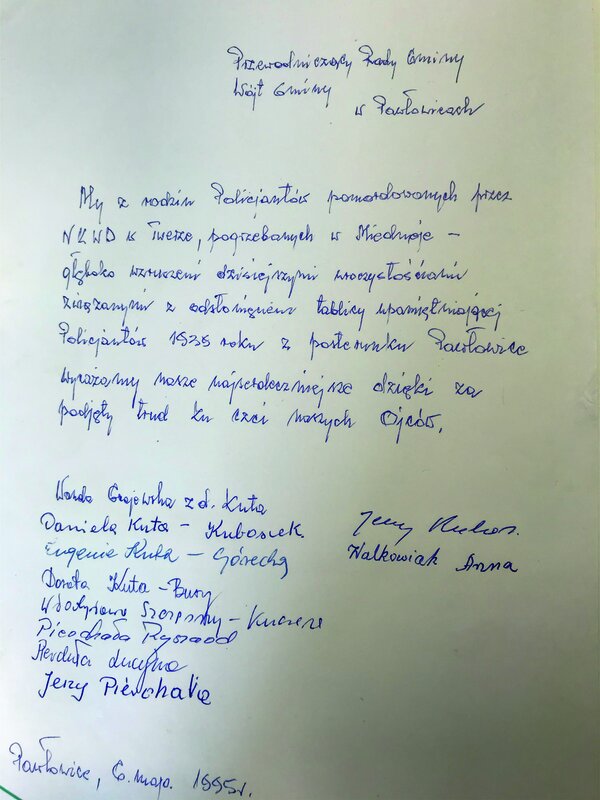 Przewodniczący Rady Gminy
Wójt Gminy
w Pawłowicach
My z rodzin Policjantów pomordowanych przez
NKWD w Twerze, pogrzebanych w Miednoje -
głęboko wzruszeni dzisiejszymi uroczystościami
związanymi z odsłonięciem tablicy upamiętniającej
Policjantów 1939 roku z posterunku Pawłowice
wyrażamy nasze najserdeczniejsze dzięki za
podjęty trud ku czci naszych Ojców.
Wanda Grajewska z d. Kuta
Daniela Kuta - Kubosek
Jerzy
Eugenia Kuta - Górecka
Walkowiak Anna
Dorota Kuta - Bury
Pierchała Ryszard
Jerzy Pierchała
Pawłowice, 6. maja. 1995r.